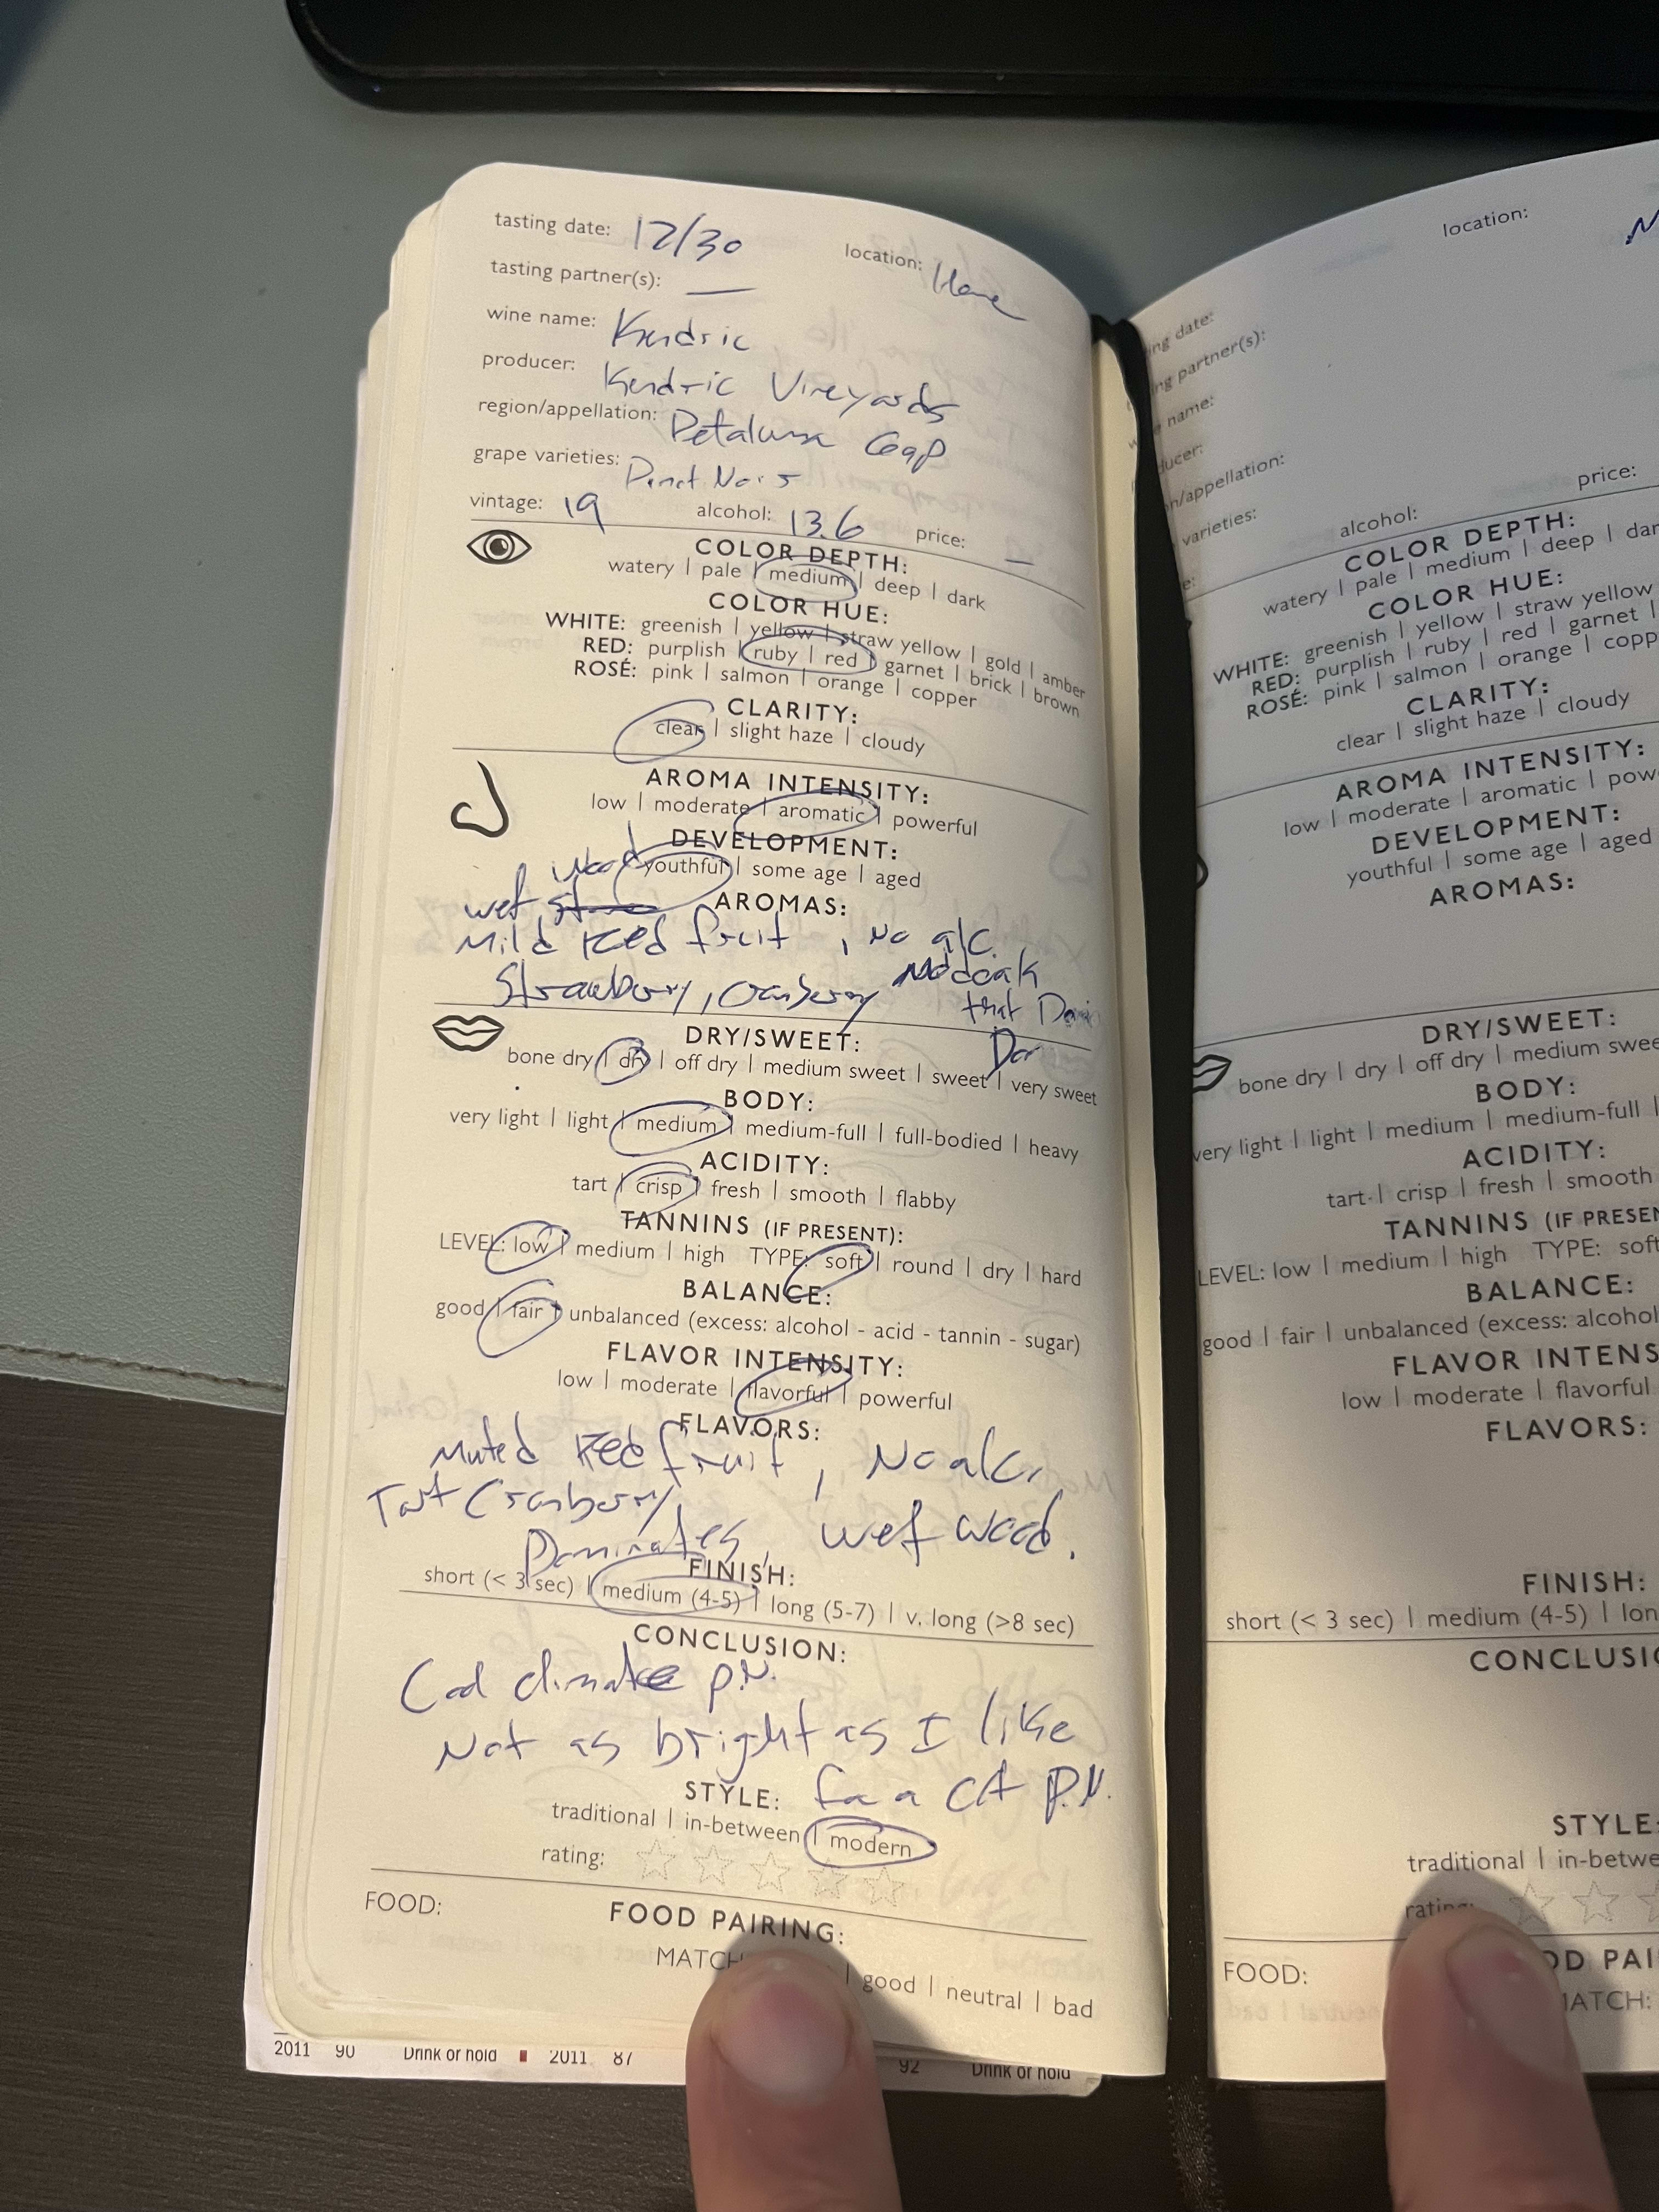 tasting date: 12/30 location: Home
tasting partner(s): —
wine name: Kendric
producer: Kendric Vineyards
region/appellation: Petaluma Gap
grape varieties: Pinot Noir
vintage: 19 alcohol: 13.6 price: —
COLOR DEPTH:
watery | pale | medium | deep | dark
COLOR HUE:
WHITE: greenish | yellow | straw yellow | gold | amber
RED: purplish | ruby | red | garnet | brick | brown
ROSÉ: pink | salmon | orange | copper
CLARITY:
clear | slight haze | cloudy
AROMA INTENSITY:
low | moderate | aromatic | powerful
DEVELOPMENT:
youthful | some age | aged
wood
wet AROMAS:
Mild Red fruit, No alc.
Strawberry, Cranberry
that
DRY/SWEET:
bone dry | dry | off dry | medium sweet | sweet | very sweet
BODY:
very light | light | medium | medium-full | full-bodied | heavy
ACIDITY:
tart | crisp | fresh | smooth | flabby
TANNINS (IF PRESENT):
LEVEL: low | medium | high TYPE: soft | round | dry | hard
BALANCE:
good | fair | unbalanced (excess: alcohol - acid - tannin - sugar)
FLAVOR INTENSITY:
low | moderate | flavorful | powerful
FLAVORS:
Muted Red fruit, No alc,
Tart Cranberry
Dominates, wet wood.
FINISH:
short (< 3 sec) | medium (4-5) | long (5-7) | v. long (>8 sec)
CONCLUSION:
Cool climate P.N.
Not as bright as I like
for a CA P.N.
STYLE:
traditional | in-between | modern
rating:
FOOD PAIRING:
FOOD:
MATCH | good | neutral | bad
2011 90 Drink or hold 2011 87
92 Drink or hold
location:
ing date:
ng partner(s):
name:
ducer:
on/appellation:
varieties: price:
alcohol:
COLOR DEPTH:
watery | pale | medium | deep | dar
COLOR HUE:
WHITE: greenish | yellow | straw yellow
RED: purplish | ruby | red | garnet |
ROSÉ: pink | salmon | orange | copp
CLARITY:
clear | slight haze | cloudy
AROMA INTENSITY:
low | moderate | aromatic | pow
DEVELOPMENT:
youthful | some age | aged
AROMAS:
DRY/SWEET:
bone dry | dry | off dry | medium swee
BODY:
very light | light | medium | medium-full |
ACIDITY:
tart | crisp | fresh | smooth
TANNINS (IF PRESEN
LEVEL: low | medium | high TYPE: soft
BALANCE:
good | fair | unbalanced (excess: alcohol
FLAVOR INTENS
low | moderate | flavorful
FLAVORS:
FINISH:
short (< 3 sec) | medium (4-5) | lon
CONCLUSIO
STYLE:
traditional | in-betwe
rating:
OD PAI
FOOD:
MATCH: